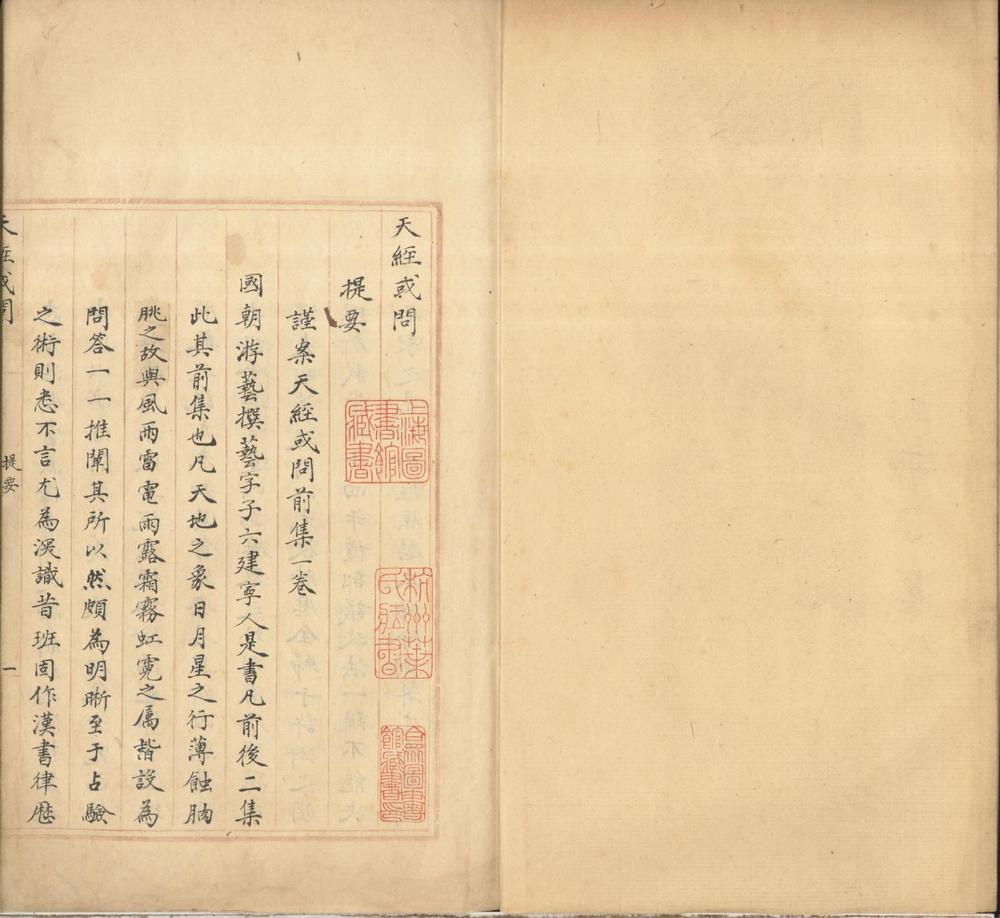 天經或問
提要
謹案天經或問前集一卷
國朝游藝撰藝字子六建寧人是書凡前後二集
此其前集也凡天地之象日月星之行薄蝕朒
朓之故與風雨雷電雨露霜霧虹霓之属皆設為
問答一一推闡其所以然頗為明晰至于占驗
之術則悉不言尤為深識昔班固作漢書律歴
天經或問
提要
一
上海圖書館藏書
杭州葉氏藏書
合眾圖書館藏書印